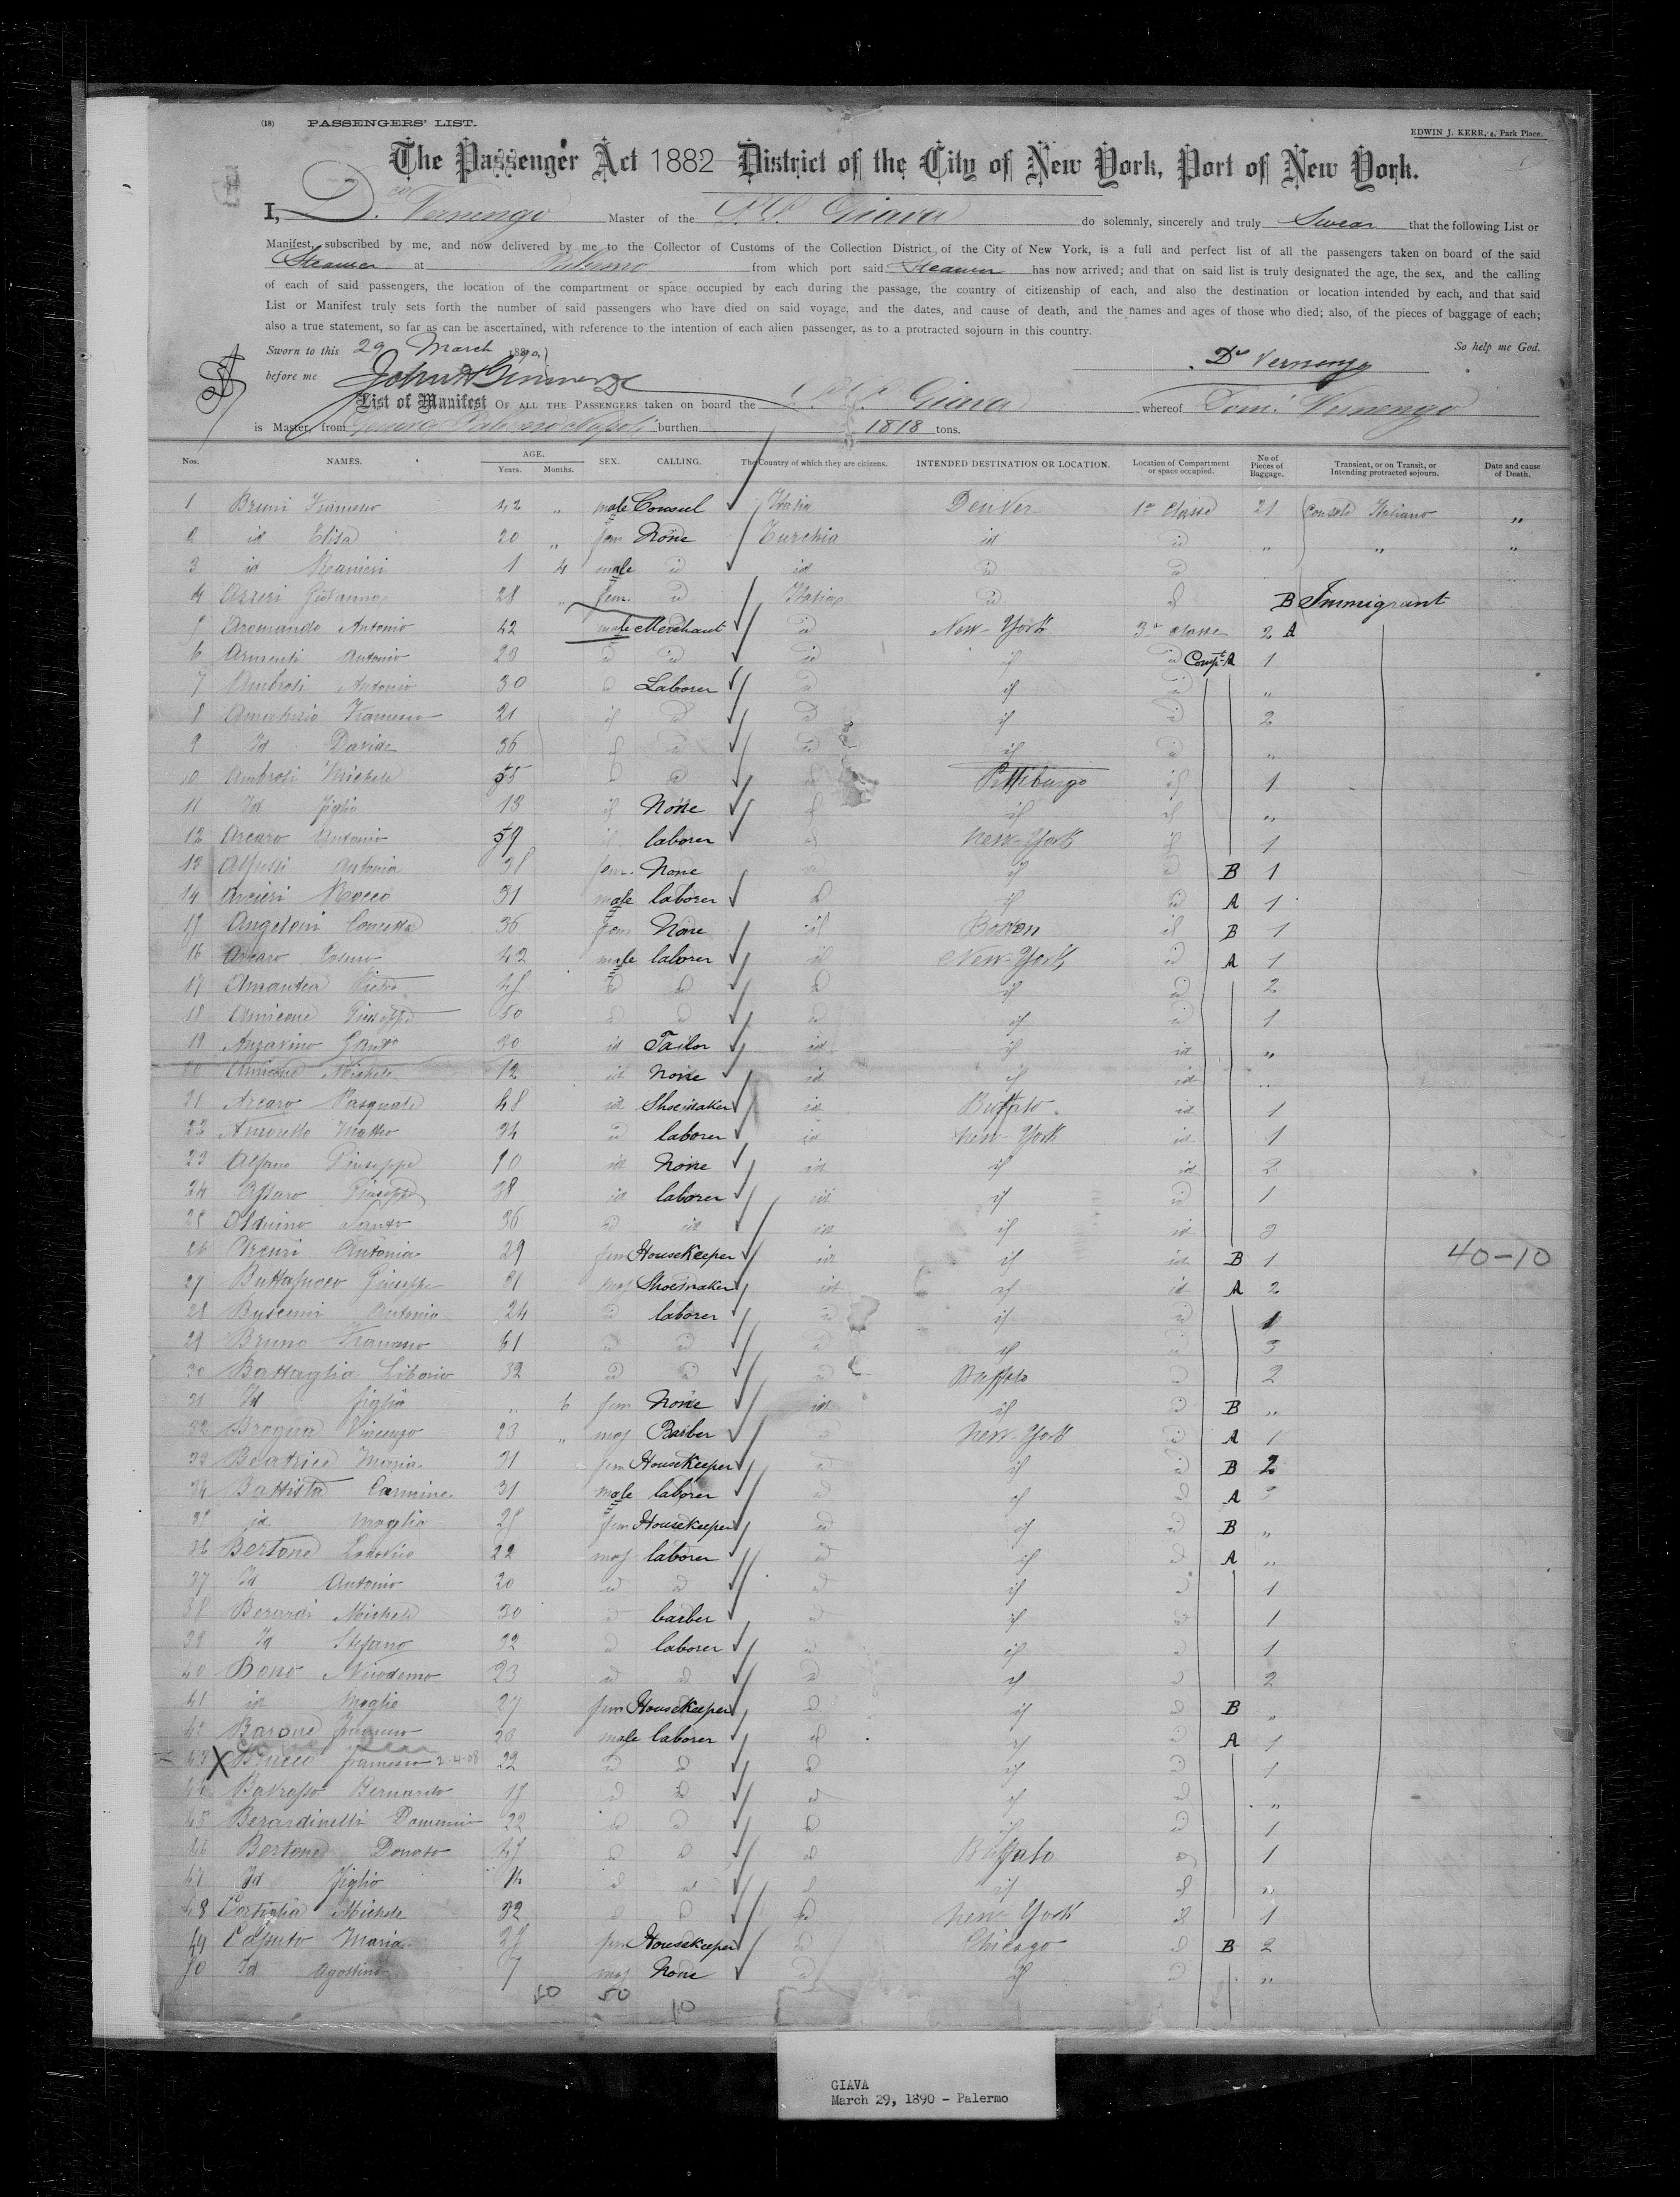 (18) PASSENGERS' LIST.
EDWIN J. KERR, 4, Park Place.
The Passenger Act 1882 District of the City of New York, Port of New York.
I, D. Vernengo Master of the Giava do solemnly, sincerely and truly Swear that the following List or
Manifest, subscribed by me, and now delivered by me to the Collector of Customs of the Collection District of the City of New York, is a full and perfect list of all the passengers taken on board of the said
Steamer at Palermo from which port said Steamer has now arrived; and that on said list is truly designated the age, the sex, and the calling
of each of said passengers, the location of the compartment or space occupied by each during the passage, the country of citizenship of each, and also the destination or location intended by each, and that said
List or Manifest truly sets forth the number of said passengers who have died on said voyage, and the dates, and cause of death, and the names and ages of those who died; also, of the pieces of baggage of each;
also a true statement, so far as can be ascertained, with reference to the intention of each alien passenger, as to a protracted sojourn in this country.
Sworn to this 29 March 1890 So help me God.
before me D. Vernengo
List of Manifest OF ALL THE PASSENGERS taken on board the Giava whereof Dom. Vernengo
is Master, from Genova Palermo Napoli burthen 1818 tons.
Nos. NAMES. AGE. Years. Months. SEX. CALLING. The Country of which they are citizens. INTENDED DESTINATION OR LOCATION. Location of Compartment or space occupied. No of Pieces of Baggage. Transient, or on Transit, or Intending protracted sojourn. Date and cause of Death.
1 Bruni Francesco 42 " male Consul Italia Denver 1a Classe 21 Console Italiano "
2 id Elisa 20 " fem None Turchia id id " " "
3 id Ranieri 1 4 male id id id id
4 Giovanna 28 fem. id Italia id id B Immigrant
5 Antonio 42 male Merchant id New-York 3a classe 2 A
6 Armenti Antonio 23 id id id id id Compt A 1
7 Ambrosi Antonio 30 id Laborer id id id "
8 Francesco 21 id id id id id 2
9 Id Davide 36 id id id id id "
10 Ambrosi Michele 55 id id id Pittiburgo id 1
11 Id figlio 13 id None id id id "
12 Arcaro Antonio 59 id laborer id New-York id 1
13 Antonia 38 fem. None id id id B 1
14 Arcieri Rocco 31 male laborer id id id A 1
15 Angeloni Concetta 36 fem None id Boston id B 1
16 Arcaro Cosmo 42 male laborer id New-York id A 1
17 Amantea Pietro 45 id id id id id 2
18 Amicone Giuseppe 50 id id id id id 1
19 30 id Tailor id id id "
20 Amicone Michele 12 id None id id id "
21 Arcaro Pasquale 48 id Shoemaker id Buffalo id 1
22 Amoretti Matteo 34 id laborer id New-York id 1
23 Alfano Giuseppe 10 id None id id id 2
24 Giuseppe 38 id laborer id id id 1
25 Alduino Santo 36 id id id id id 2
26 Antonia 29 fem Housekeeper id id id B 1 40-10
27 Buttafuoco Giuseppe 31 mas Shoemaker id id id A 2
28 Buscemi Antonio 24 id laborer id id id 1
29 Bruno Francesco 61 id id id id id 3
30 Battaglia Liborio 32 id id id Buffalo id 2
31 Id figlia " 6 fem None id id id B "
32 Vincenzo 23 " mas Barber id New-York id A 1
33 Beatrice Maria 31 fem Housekeeper id id id B 2
34 Battista Carmine 31 male laborer id id id A 3
35 id Moglie 25 fem Housekeeper id id id B "
36 Bertone Lodovico 22 mas laborer id id id A "
37 Id Antonio 20 id id id id id 1
38 Berardi Michele 30 id barber id id id 1
39 Id Stefano 32 id laborer id id id 1
40 Bono Nicodemo 23 id id id id id 2
41 id Moglie 27 fem Housekeeper id id id B "
42 Barone Francesco 28 male laborer id id id A 1
43 X Francesco 2-4-08 22 id id id id id 1
44 Bernardo 18 id id id id id "
45 Berardinelli Domenico 22 id id id id id 1
46 Bertone Donato 45 id id id Buffalo id 1
47 Id figlio 14 id id id id id "
48 Michele 32 id id id New-York id 1
49 Maria 35 fem Housekeeper id Chicago id B 2
50 Id Agostino 7 mas None id id id "
50 50
10
GIAVA
March 29, 1890 - Palermo